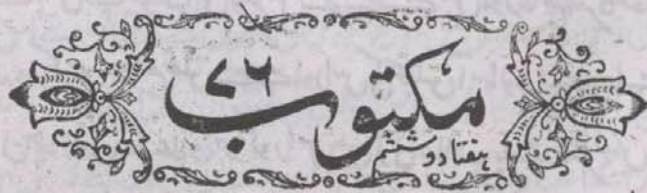 مکتوب ۷۶
ہفتاد و ششم